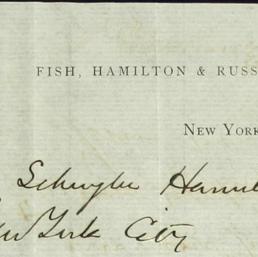 FISH, HAMILTON & RUSS
NEW YORK
Schuyler Hamil
New York City